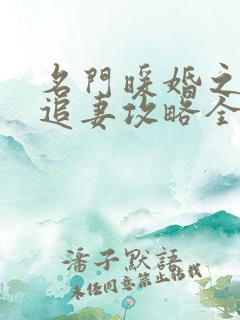 名門暖婚之
追妻攻略全
潘子默語
未經同意禁止轉載